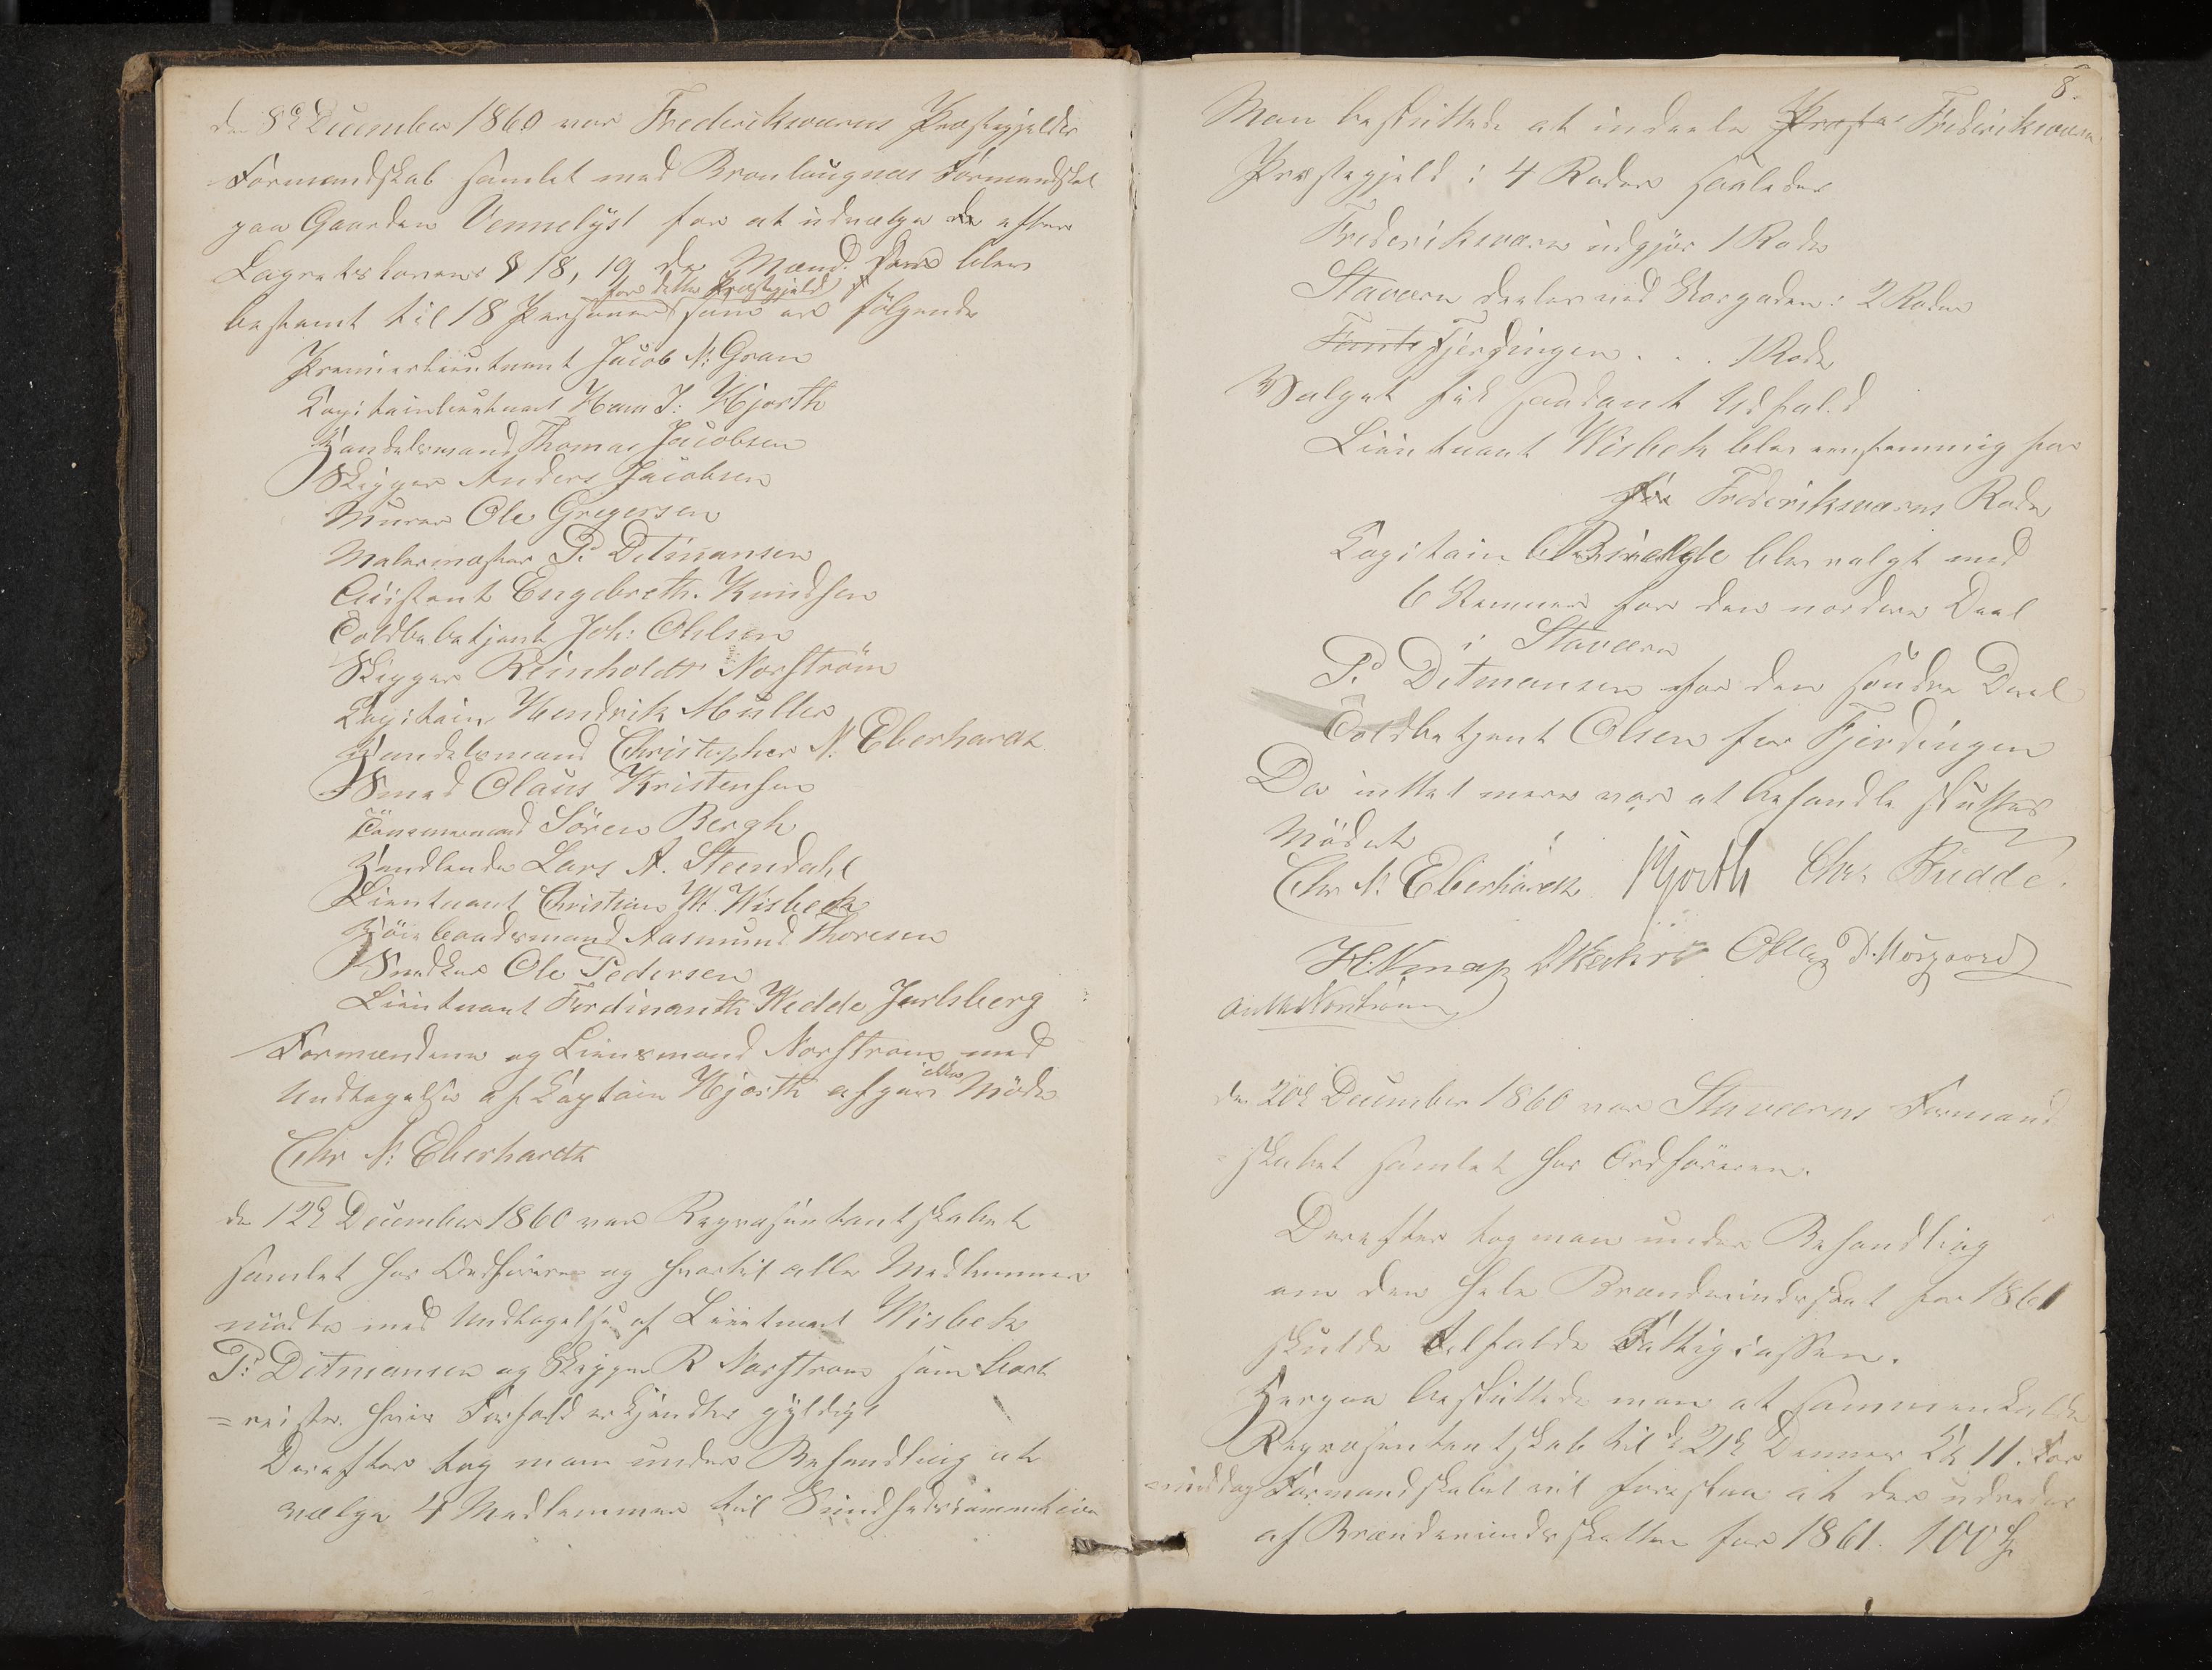 den 8de December 1860 var Frederiksværns Præstegjælds
Formandskab samlet med Brunlaugnæs Formandskab
paa Gaarden Vennelyst for at udvælge de efter
Lagretslovens § 18, 19 de Mænd. Der blev
for dette Præstegjeld
bestemt til 18 Personer som er følgende
Premierlieutnant Jacob N: Gran
Capitainlieutnant Hans J: Hjorth
Handelsmand Thomas Jacobsen
Skipper Anders Jacobsen
Murer Ole Gregersen
Malermester P. Ditmansen
Assistent Engebreth. Knudsen
Toldbebetjent Joh: Ohlsen
Skipper Reinholdt Norstrøm
Capitain Hendrik Müller
Handelsmand Christopher N. Eberhardt
Smed Olaus Kristensen
Tømmermand Sören Bergh
Handlende Lars A. Steendahl
Lieutnant Christian W. Wisbech
Høiebaadsmand Aasmund Thoresen
Snedker Ole Pedersen
Lieutnant Ferdinanth Wedde Jarlsberg
Formændene og Lensmand Norstrøm med
ikke
Undtagelse af Captain Hjorth afgav Møde
Chr N: Eberhardt
den 12te December 1860 var Repræsentantskabet
samlet hos Ordføreren og hvortil alle Medlemmer
mødte med Undtagelse af Lieutnant Wisbech
P: Ditmansen og Skipper R Norstrøm som bort
=reiste. hvis Forfald erkjendtes gyldigt
Derefter tog man under Behandling at
vælge 4 Medlemmer til Sundhedskommission
8.
Man besluttede at inddele Præste Frederiksværn
Præstegjeld i 4 Roder saaledes
Frederiksværn udgjør 1 Rode
Stavern deeles ved Torgaden i 2 Roder
Fjerdingen . . . 1 Rode
Valget fik saadant Udfald
Lieutnant Wisbech blev eenstemmig for
for Frederiksværns Rode
Capitain Budde blev valgt med
6 Stemmer for den nordre Deel
i Stavern
P. Ditmansen for den søndre Deel
Toldbetjent Olsen for Fjerdingen
Da inttet mere var at behandle sluttes
Mødet
Chr N. Eberhardt Hjorth Chr. Budde.
H: Knap
den 20de December 1860 var Staværns Formand
=skabet samlet hos Ordføreren.
Derefter tog man under Behandling
om den hele Brændeviinsskat for 1861
skulde tilfalde Fattigcassen.
Herpaa besluttede man at sammenkalde
Repræsentantskab til d 21de Dennes Kl 11. For
=middag Formandskabet vil foreslaa at der udredes
af Brændeviinsskatten for 1861. 100